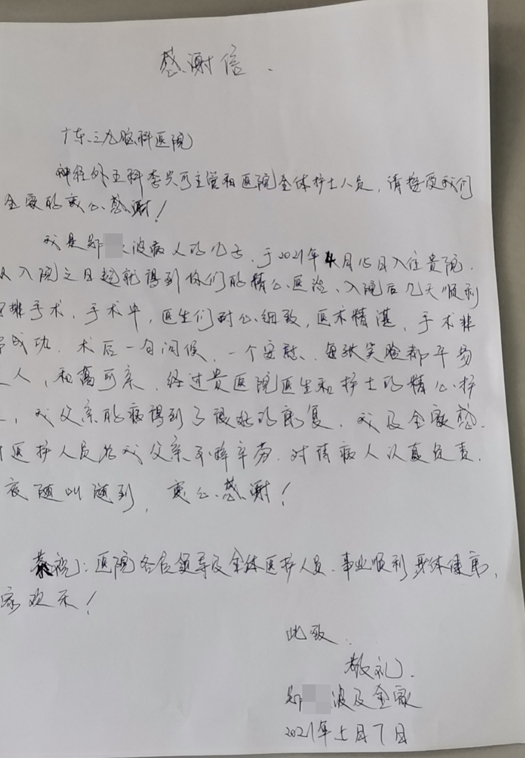 感谢信.
广东三九脑科医院
神经外五科李兴可主管和医院全体护士人员,请接受我们
全家的衷心感谢!
我是郑 波病人的儿子,于2021年4月15日入住贵院.
入院之日起就得到你们的精心医治、入院后几天顺利
安排手术,手术中,医生们耐心细致,医术精湛,手术非
成功.术后一句问候,一个安慰、每张笑脸都平易
人,和蔼可亲,经过贵医院医生和护士的精心护
,我父亲的病得到了很好的康复,我及全家感
医护人员为我父亲不辞辛劳.对待病人认真负责.
夜随叫随到,衷心感谢!
恭祝:医院各位领导及全体医护人员.事业顺利身体健康,
家欢乐!
此致.
敬礼.
郑 波及全家
2021年5月7日